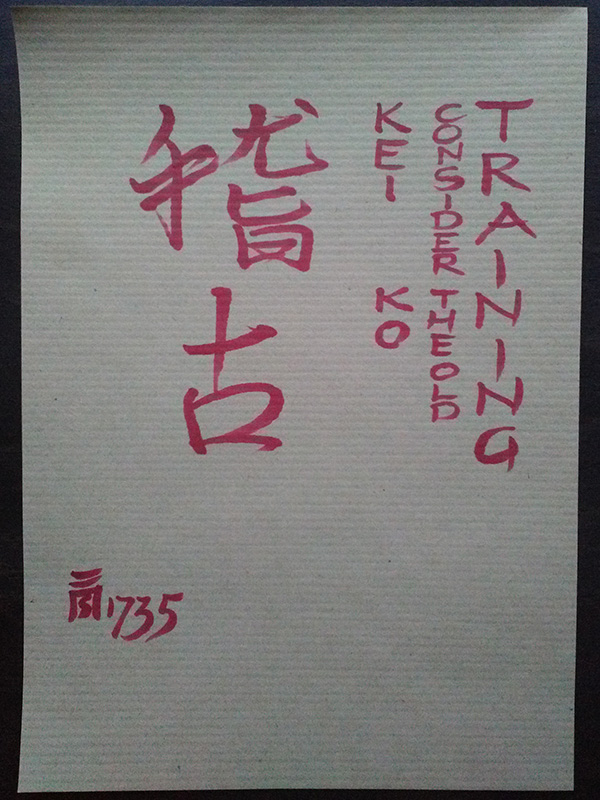 TRAINING
CONSIDER THE OLD
KEI KO
稽古
1735